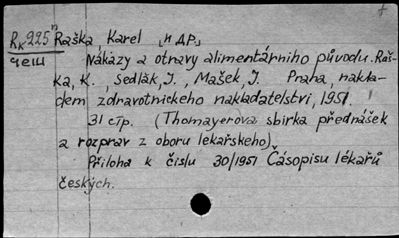 Rк 925 п Raška, Karel [и др]
чеш Nákazy a otravy alimentárního původu. Raš-
ka, K., Sedlák, J., Mašek, J. Praha, nakla-
dem zdravotnickeho nakladatelstvi, 1951.
31 стр. (Thomayerova sbirka přednášek
a rozprav z oboru lekařského)
Přiloha k čislu 30/1951 Časopisu lékařů
českých.